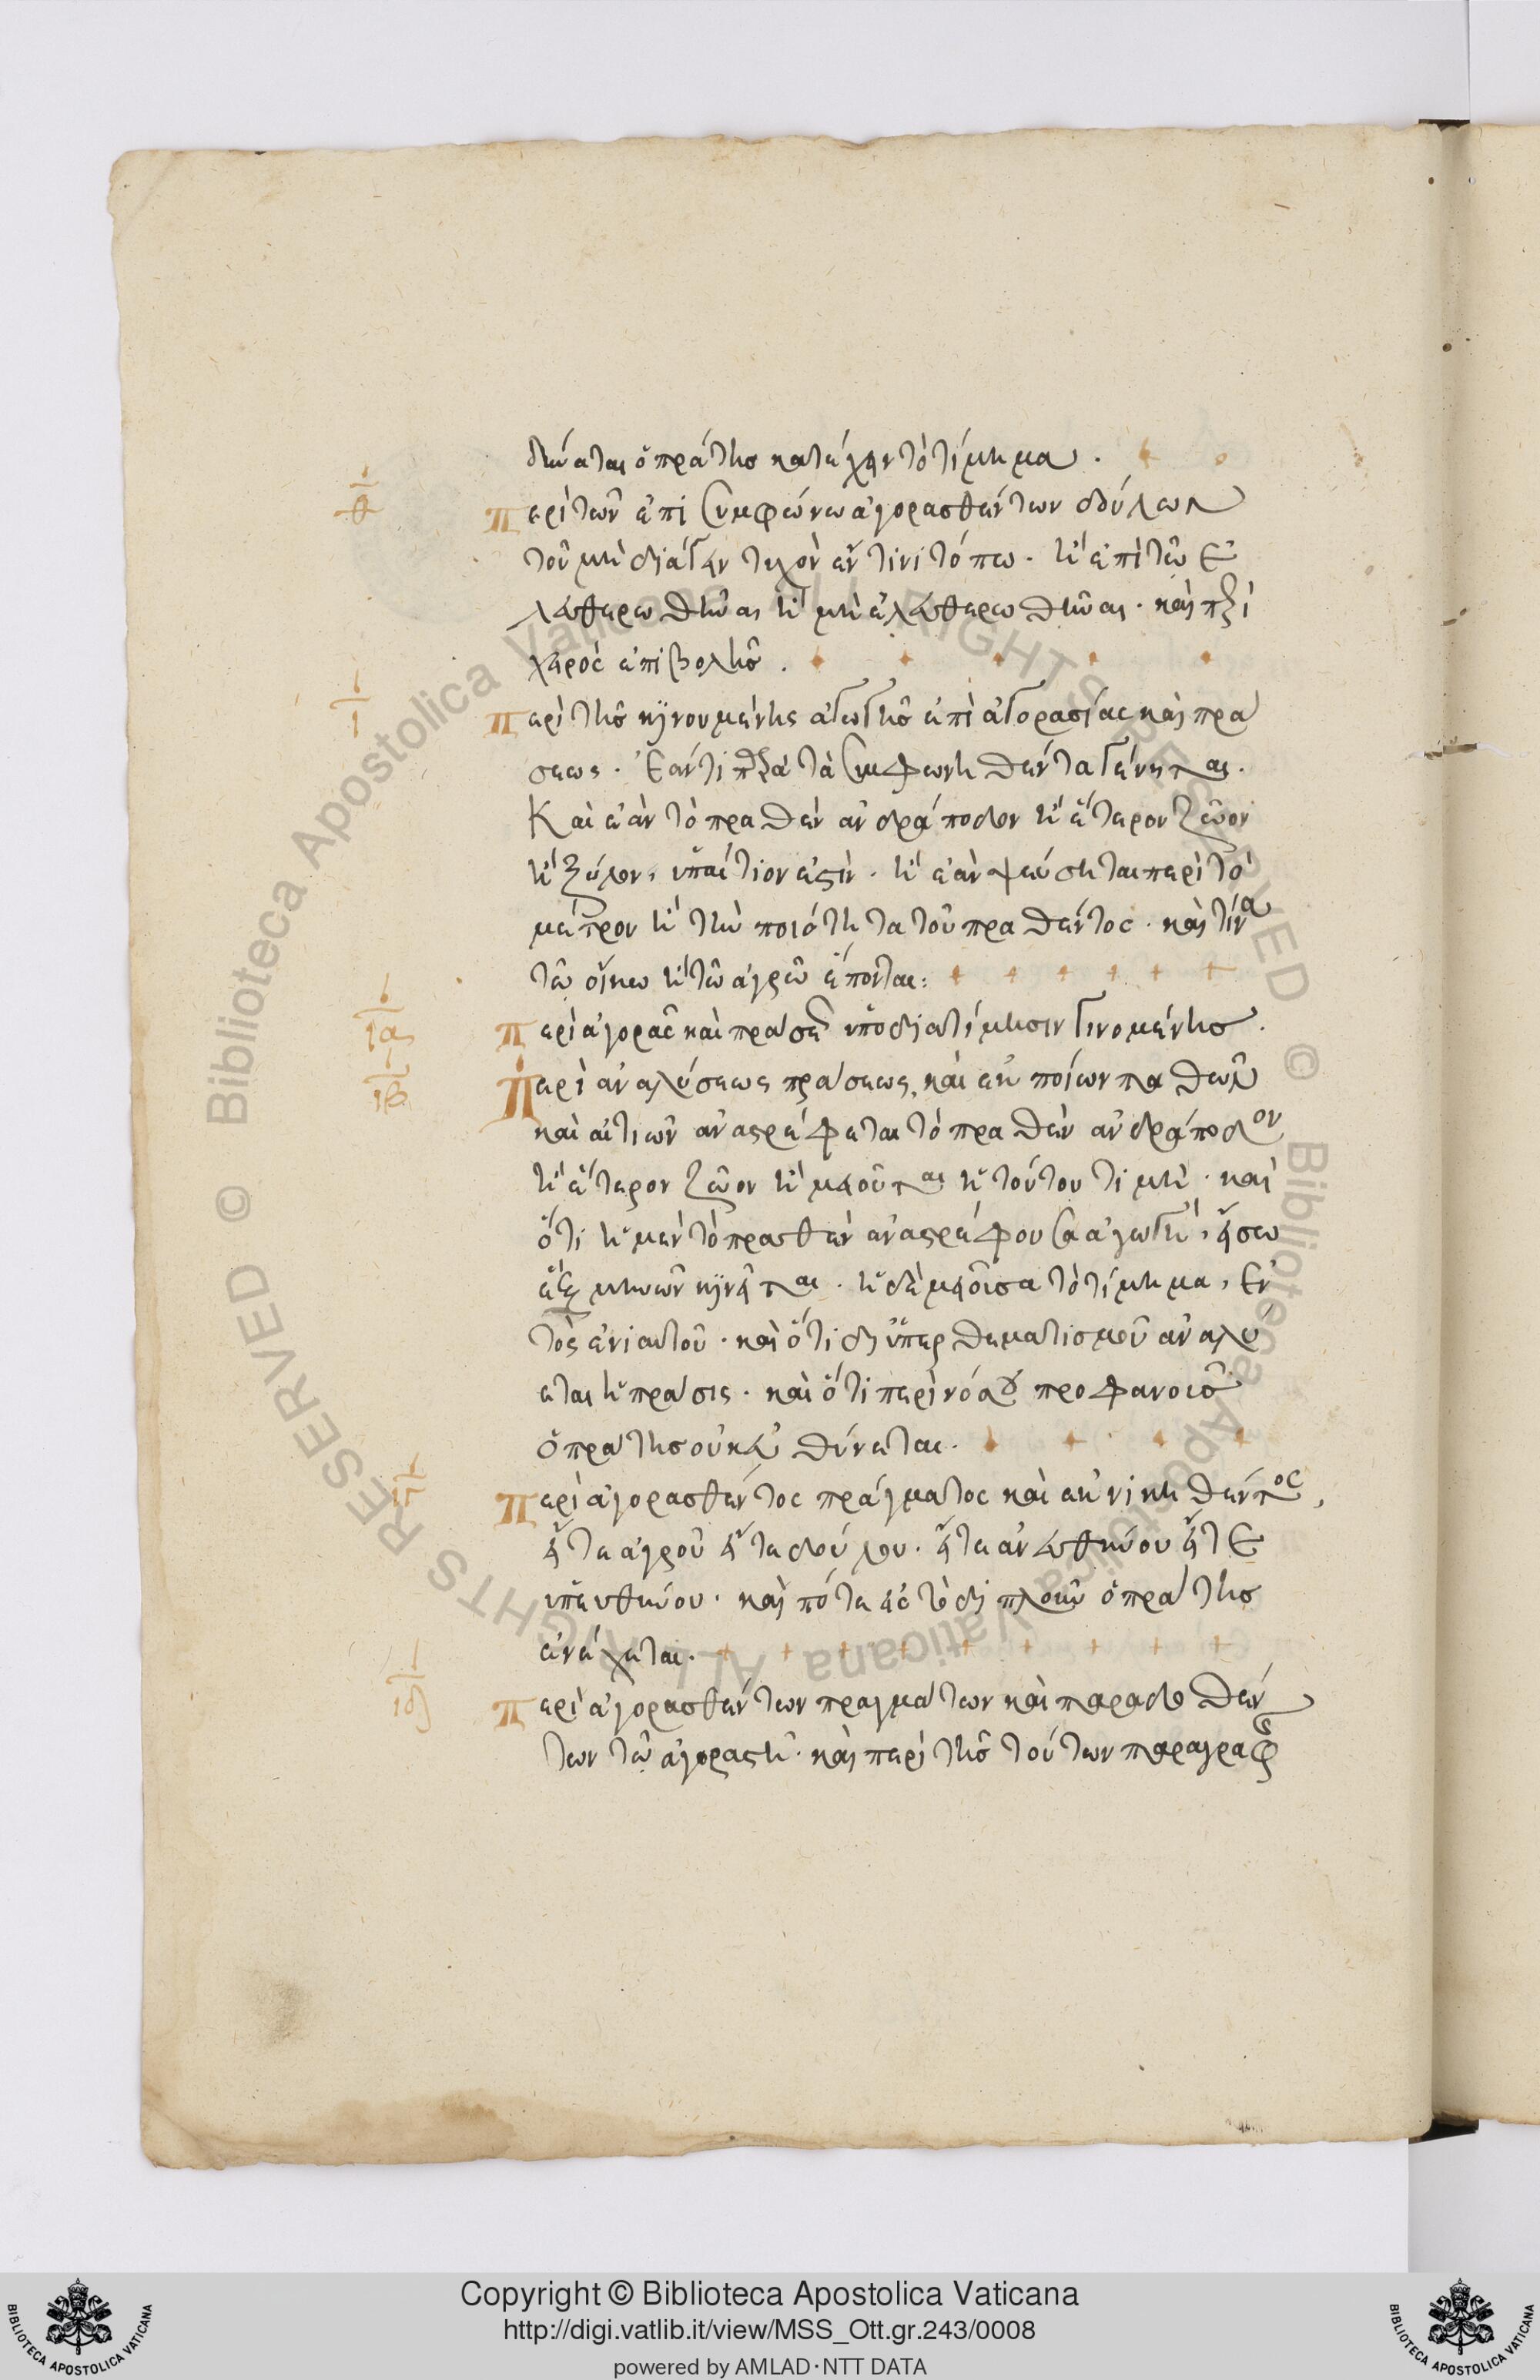 δύναται ὁ πράτης κατέχειν τὸ τίμημα.
θ Περὶ τῶν ἐπὶ συμφώνω ἀγορασθέντων δούλων
τοῦ μὴ διάγειν τυχὸν ἔν τινι τόπω. ἢ ἐπὶ τῶ ἐ
λευθερωθῆναι ἢ μὴ ἐλευθερωθῆναι. καὶ περὶ
χειρὸς ἐπιβολῆς.
ι Περὶ τῆς κινουμένης ἀγωγῆς ἐπὶ ἀγορασίας καὶ πρά
σεως. Ἐάν τι παρὰ τὰ συμφωνηθέντα γένηται.
Καὶ ἐὰν τὸ πραθὲν ἀνδράποδον ἢ ἕτερον ζῶον
ἢ ξύλον, ὑπαίτιον ἐστὶν. ἢ ἐὰν ψεύσηται περὶ τὸ
μέτρον ἢ τὴν ποιότητα τοῦ πραθέντος. καὶ τίνα
τῶ οἴκω ἢ τῶ ἀγρῶ ἕπονται:
ια Περὶ ἀγορᾶς καὶ πράσεως ὑπὸ διατίμησιν γινομένης.
ιβ Περὶ ἀναλύσεως πράσεως, καὶ ἐκ ποίων παθῶν
καὶ αἰτιῶν ἀναστρέφεται τὸ πραθὲν ἀνδράποδον
ἢ ἕτερον ζῶον ἢ μειοῦται ἡ τούτου τιμή. καὶ
ὅτι ἡ μὲν τὸ πραθὲν ἀναστρέφουσα ἀγωγή, εἴσω
ἓξ μηνῶν κινεῖται. ἡ δὲ μειοῦσα τὸ τίμημα, ἐν
τὸς ἐνιαυτοῦ. καὶ ὅτι δι' ὑπερθεματισμοῦ ἀναλύ
εται ἡ πρᾶσις. καὶ ὅτι περὶ νόσου προφανοῦς
ὁ πράτης οὐκ εὐθύνεται.
ιγ Περὶ ἀγορασθέντος πράγματος καὶ ἐκνικηθέντος,
εἴτε ἀγροῦ εἴτε δούλου. εἴτε ἀνευθύνου εἴτε
ὑπευθύνου. καὶ πότε εἰς τὸ διπλοῦν ὁ πράτης
ἐνέχεται.
ιδ Περὶ ἀγορασθέντων πραγμάτων καὶ παραδοθέν
των τῶ ἀγοραστῆ. καὶ περὶ τῆς τούτων παραγραφῆς
Copyright © Biblioteca Apostolica Vaticana
http://digi.vatlib.it/view/MSS_Ott.gr.243/0008
powered by AMLAD·NTT DATA
BIBLIOTECA APOSTOLICA VATICANA
BIBLIOTECA APOSTOLICA VATICANA
© Biblioteca Apostolica Vaticana ALL RIGHTS RESERVED
© Biblioteca Apostolica Vaticana ALL RIGHTS RESERVED